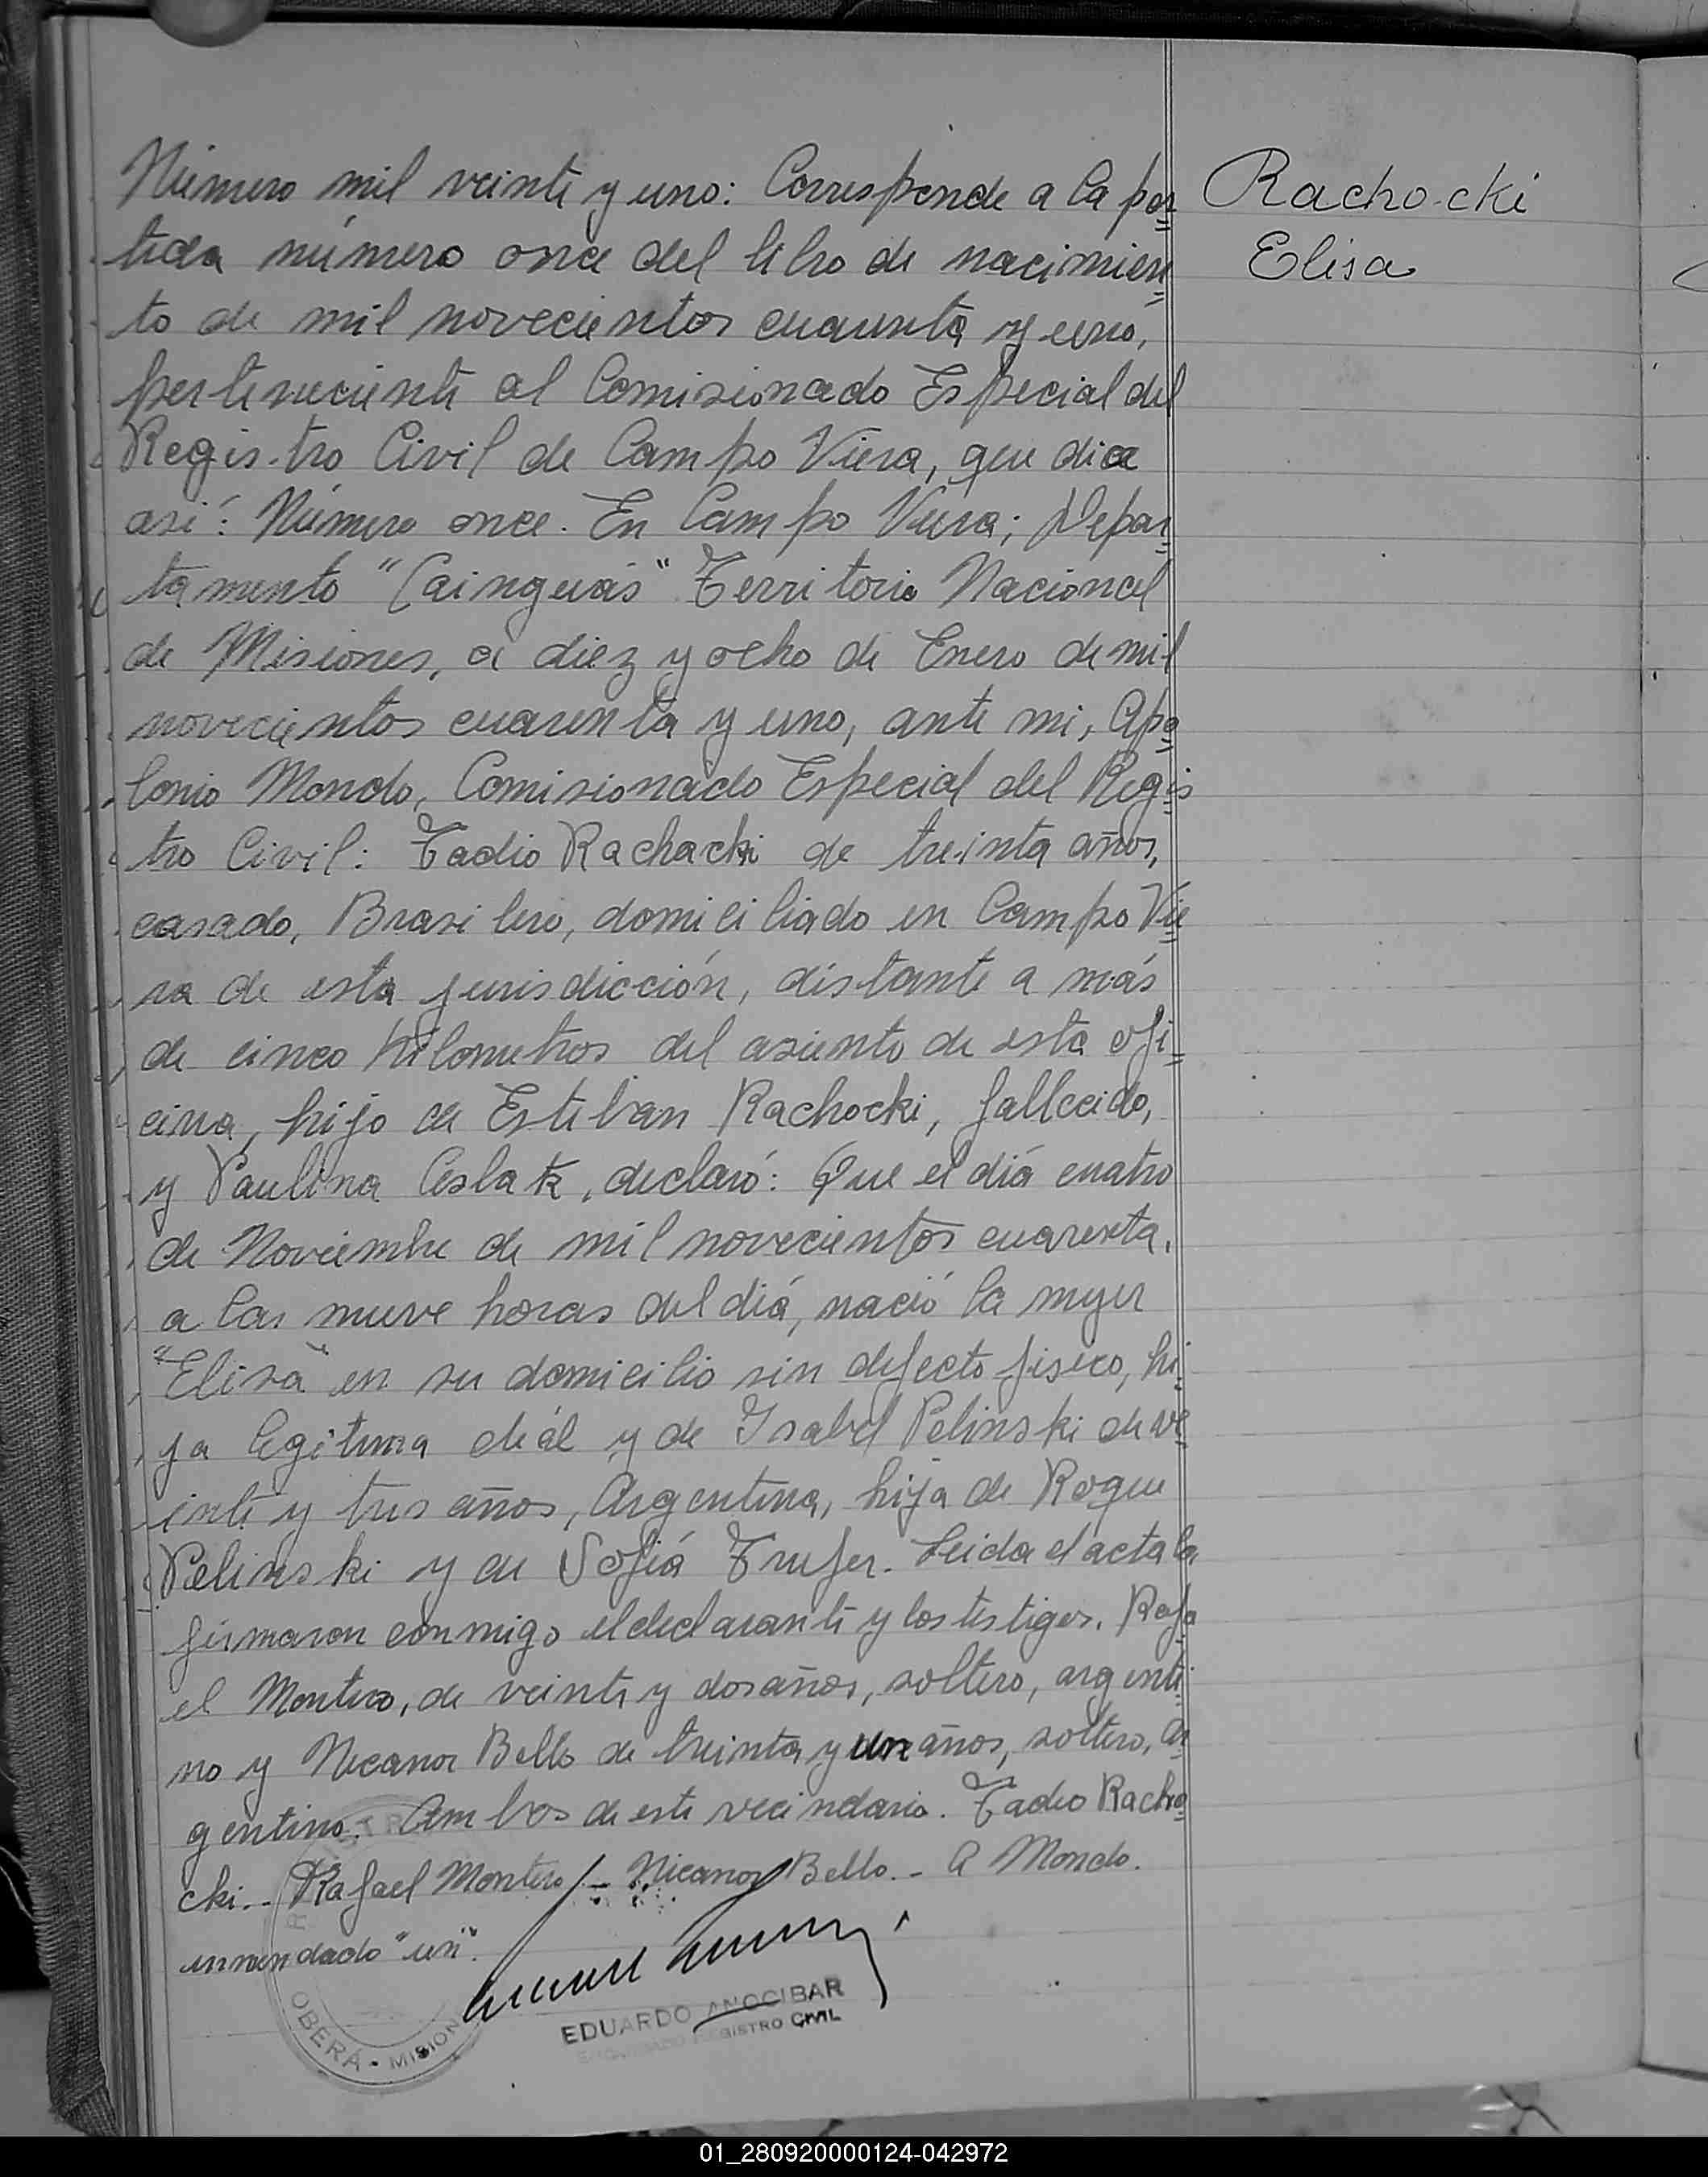 Rachocki
Elisa
Número mil veinte y uno: Corresponde a la par=
tida número once del libro de nacimien=
to de mil novecientos cuarenta y uno,
perteneciente al Comisionado Especial del
Registro Civil de Campo Viera, que dice
así: Número once. En Campo Viera; Depar=
tamento "Cainguás" Territorio Nacional
de Misiones, a diez y ocho de Enero de mil
novecientos cuarenta y uno, ante mi, Apo=
lonio Mondo, Comisionado Especial del Regis=
tro Civil: Tadio Rachacki de treinta años,
casado, Brasilero, domiciliado en Campo Vie=
ra de esta jurisdicción, distante a más
de cinco kilometros del asiento de esta ofi=
cina, hijo de Esteban Rachocki, fallecido,
y Paulina Ceslak, declaró: Que el día cuatro
de Noviembre de mil novecientos cuarenta,
a las nueve horas del día, nació la mujer
"Elisa" en su domicilio sin defecto fisico, hi=
ja legitima de él y de Isabel Pelinski de ve=
inte y tres años, Argentina, hija de Roque
Pelinski y de Sofía Trufer. Leida el acta la
firmaron conmigo el declarante y los testigos. Rafa=
el Montero, de veinte y dos años, soltero, argenti=
no y Nicanor Bello de treinta y un años, soltero, Ar=
gentino. Ambos de este vecindario. Tadeo Racho=
cki.- Rafael Montero.- Nicanor Bello.- A Mondo.
enmendado "un".
EDUARDO ANOCIBAR
ENCARGADO REGISTRO CIVIL
OBERÁ - MISIONES
01_280920000124-042972